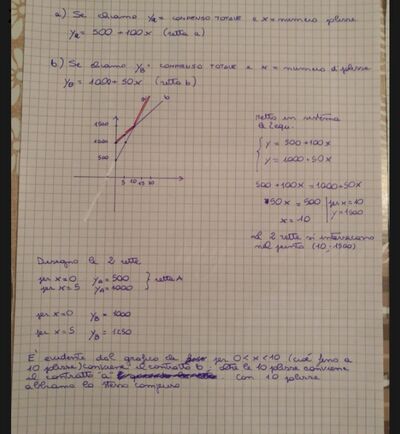 a) Se chiamo ya = compenso totale e x = numero plisse
ya = 500 + 100x (retta a)
b) Se chiamo yB = compenso totale e x = numero di plisse
yB = 1000 + 50x (retta b)
a b
1500
1000
500
5 10 15 20
metto in sistema
le 2 equ.
{ y = 500 + 100x
y = 1000 + 50x
500 + 100x = 1000 + 50x
50x = 500 | per x = 10
x = 10 | y = 1500
Le 2 rette si intersecano
nel punto (10; 1500)
Disegno le 2 rette
per x=0 yA = 500
per x=5 yA = 1000 } retta A
per x=0 yB = 1000
per x=5 yB = 1250
E' evidente dal grafico che per 0 < x < 10 (cioè fino a
10 plisse) conviene il contratto b. oltre le 10 plisse conviene
il contratto a. Con 10 plisse
abbiamo lo stesso compenso